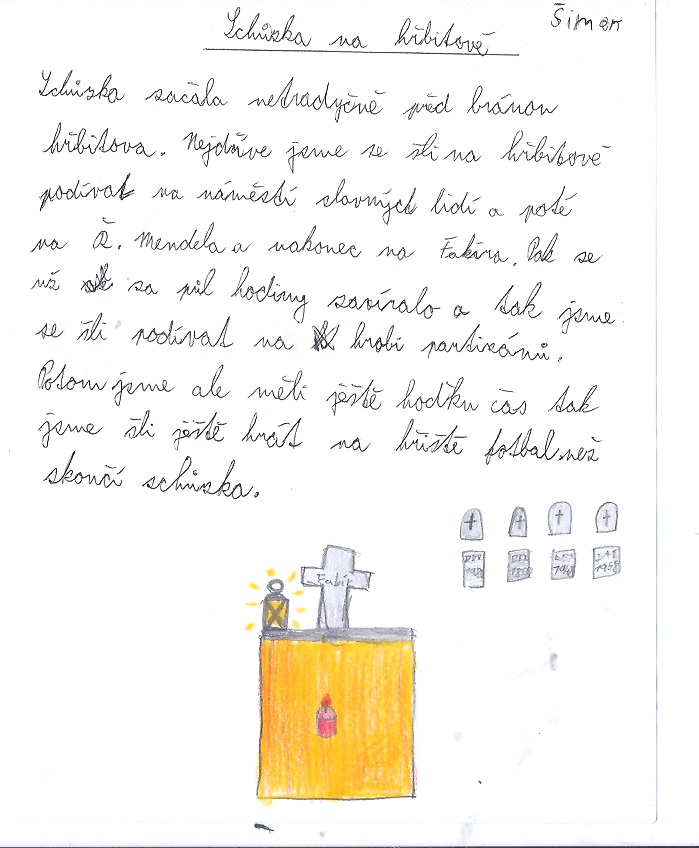 Šimon
Schůzka na hřbitově
Schůzka začala netradyčně před bránou
hřbitova. Nejdříve jsme se šli na hřbitově
podívat na náměstí slavných lidí a poté
na Ř. Mendela a nakonec na Fakíra. Pak se
už za půl hodiny zavíralo a tak jsme
se šli podívat na hrobi partizánů.
Potom jsme ale měli jěště hodku čas tak
jsme šli jěště hrát na hřiště fotbal než
skončí schůzka.
Fakír